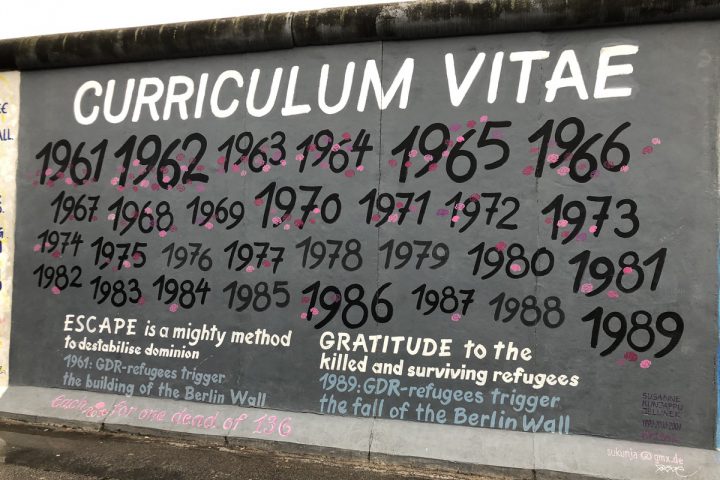 CURRICULUM VITAE
1961 1962 1963 1964 1965 1966
1967 1968 1969 1970 1971 1972 1973
1974 1975 1976 1977 1978 1979 1980 1981
1982 1983 1984 1985 1986 1987 1988 1989
ESCAPE is a mighty method
to destabilise dominion
1961: GDR-refugees trigger
the building of the Berlin Wall
GRATITUDE to the
killed and surviving refugees
1989: GDR-refugees trigger
the fall of the Berlin Wall
each for one dead of 136
SUSANNE
KUNJAPPU
JELLINEK
sukunja@gmx.de
ALL.